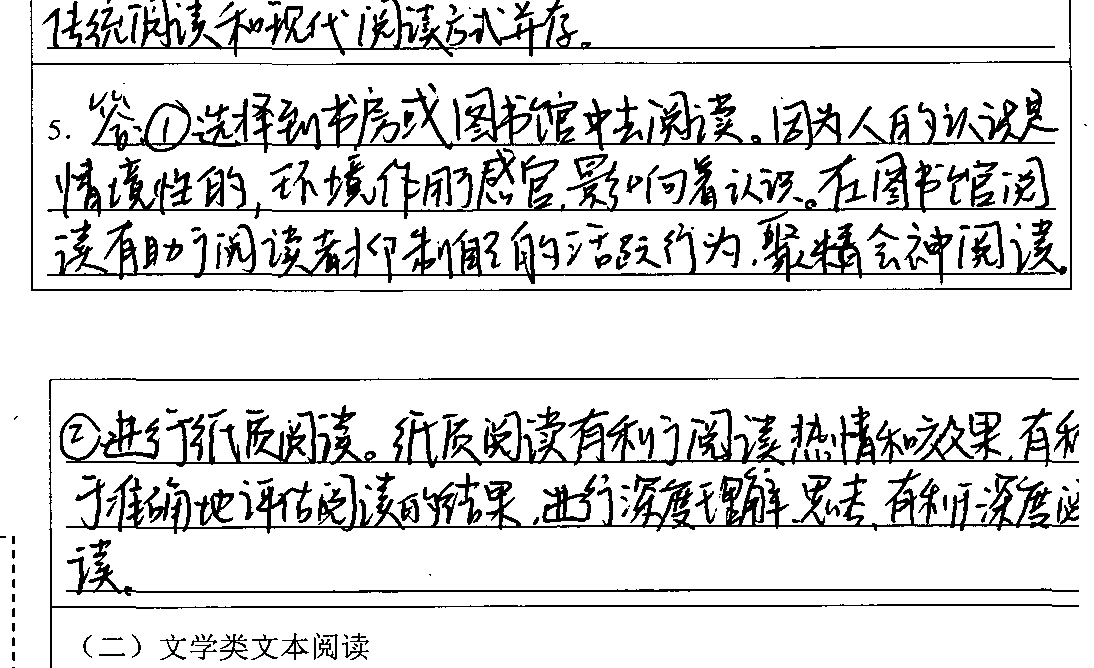 传统阅读和现代阅读方式并存。
5. 答:①选择到书房或图书馆中去阅读。因为人的认识是
情境性的,环境作用于感官,影响着认识。在图书馆阅
读有助于阅读者抑制自己的活跃行为,聚精会神阅读。
②进行纸质阅读。纸质阅读有利于阅读热情和效果,有利
于准确地评估阅读的结果,进行深度理解、思考,有利于深度阅
读。
(二)文学类文本阅读